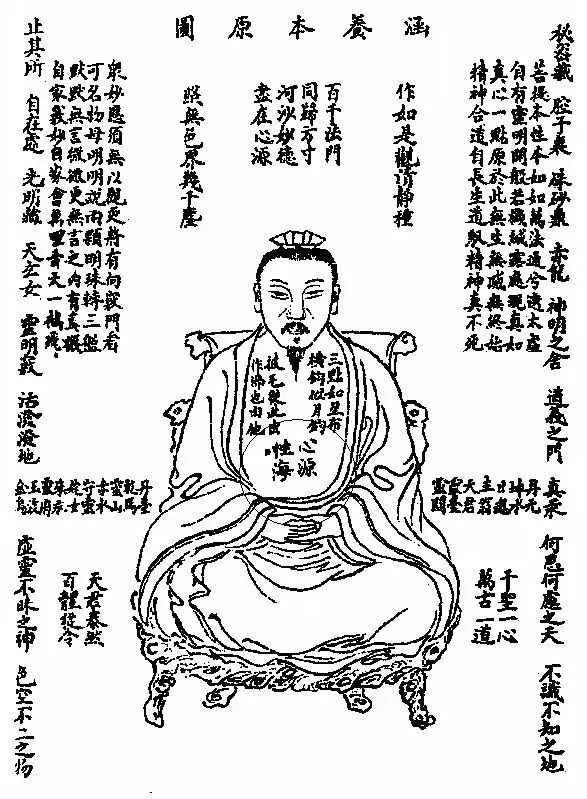 涵養本原圖
秘密藏 腔子裏 硃砂鼎 赤龍 神明之舍 道義之門 真汞 何思何慮之天 不識不知之地
菩提本性本如如萬法通兮透太虛
自有靈明開般若機緘露處現真如
真心一點原於此無生無滅無終始
精神合道自長生道馭精神真不死
作如是觀清靜種
百千法門
同歸方寸
河沙妙德
盡在心源
照無色界幾千塵
眾妙應須無以觀更將有向竅門看
可名物母明明說兩顆明珠轉三盤
默默無言微微更無言之內有真機
自家義妙自家會萬里青天一鶴飛
止其所 自在處 光明藏 天玄女 靈明竅 活潑潑地 虛靈不昧之神 色空不二之物
三點如星布
橫鈎似月鈎
披毛從此出
作佛也由他
心源
性海
丹元
神水
日魂
主翁
天君
靈臺
靈關
丹臺
乾馬
靈山
赤水
守靈
姹女
靈府
玉液
金烏
千聖一心
萬古一道
天君泰然
百體從令